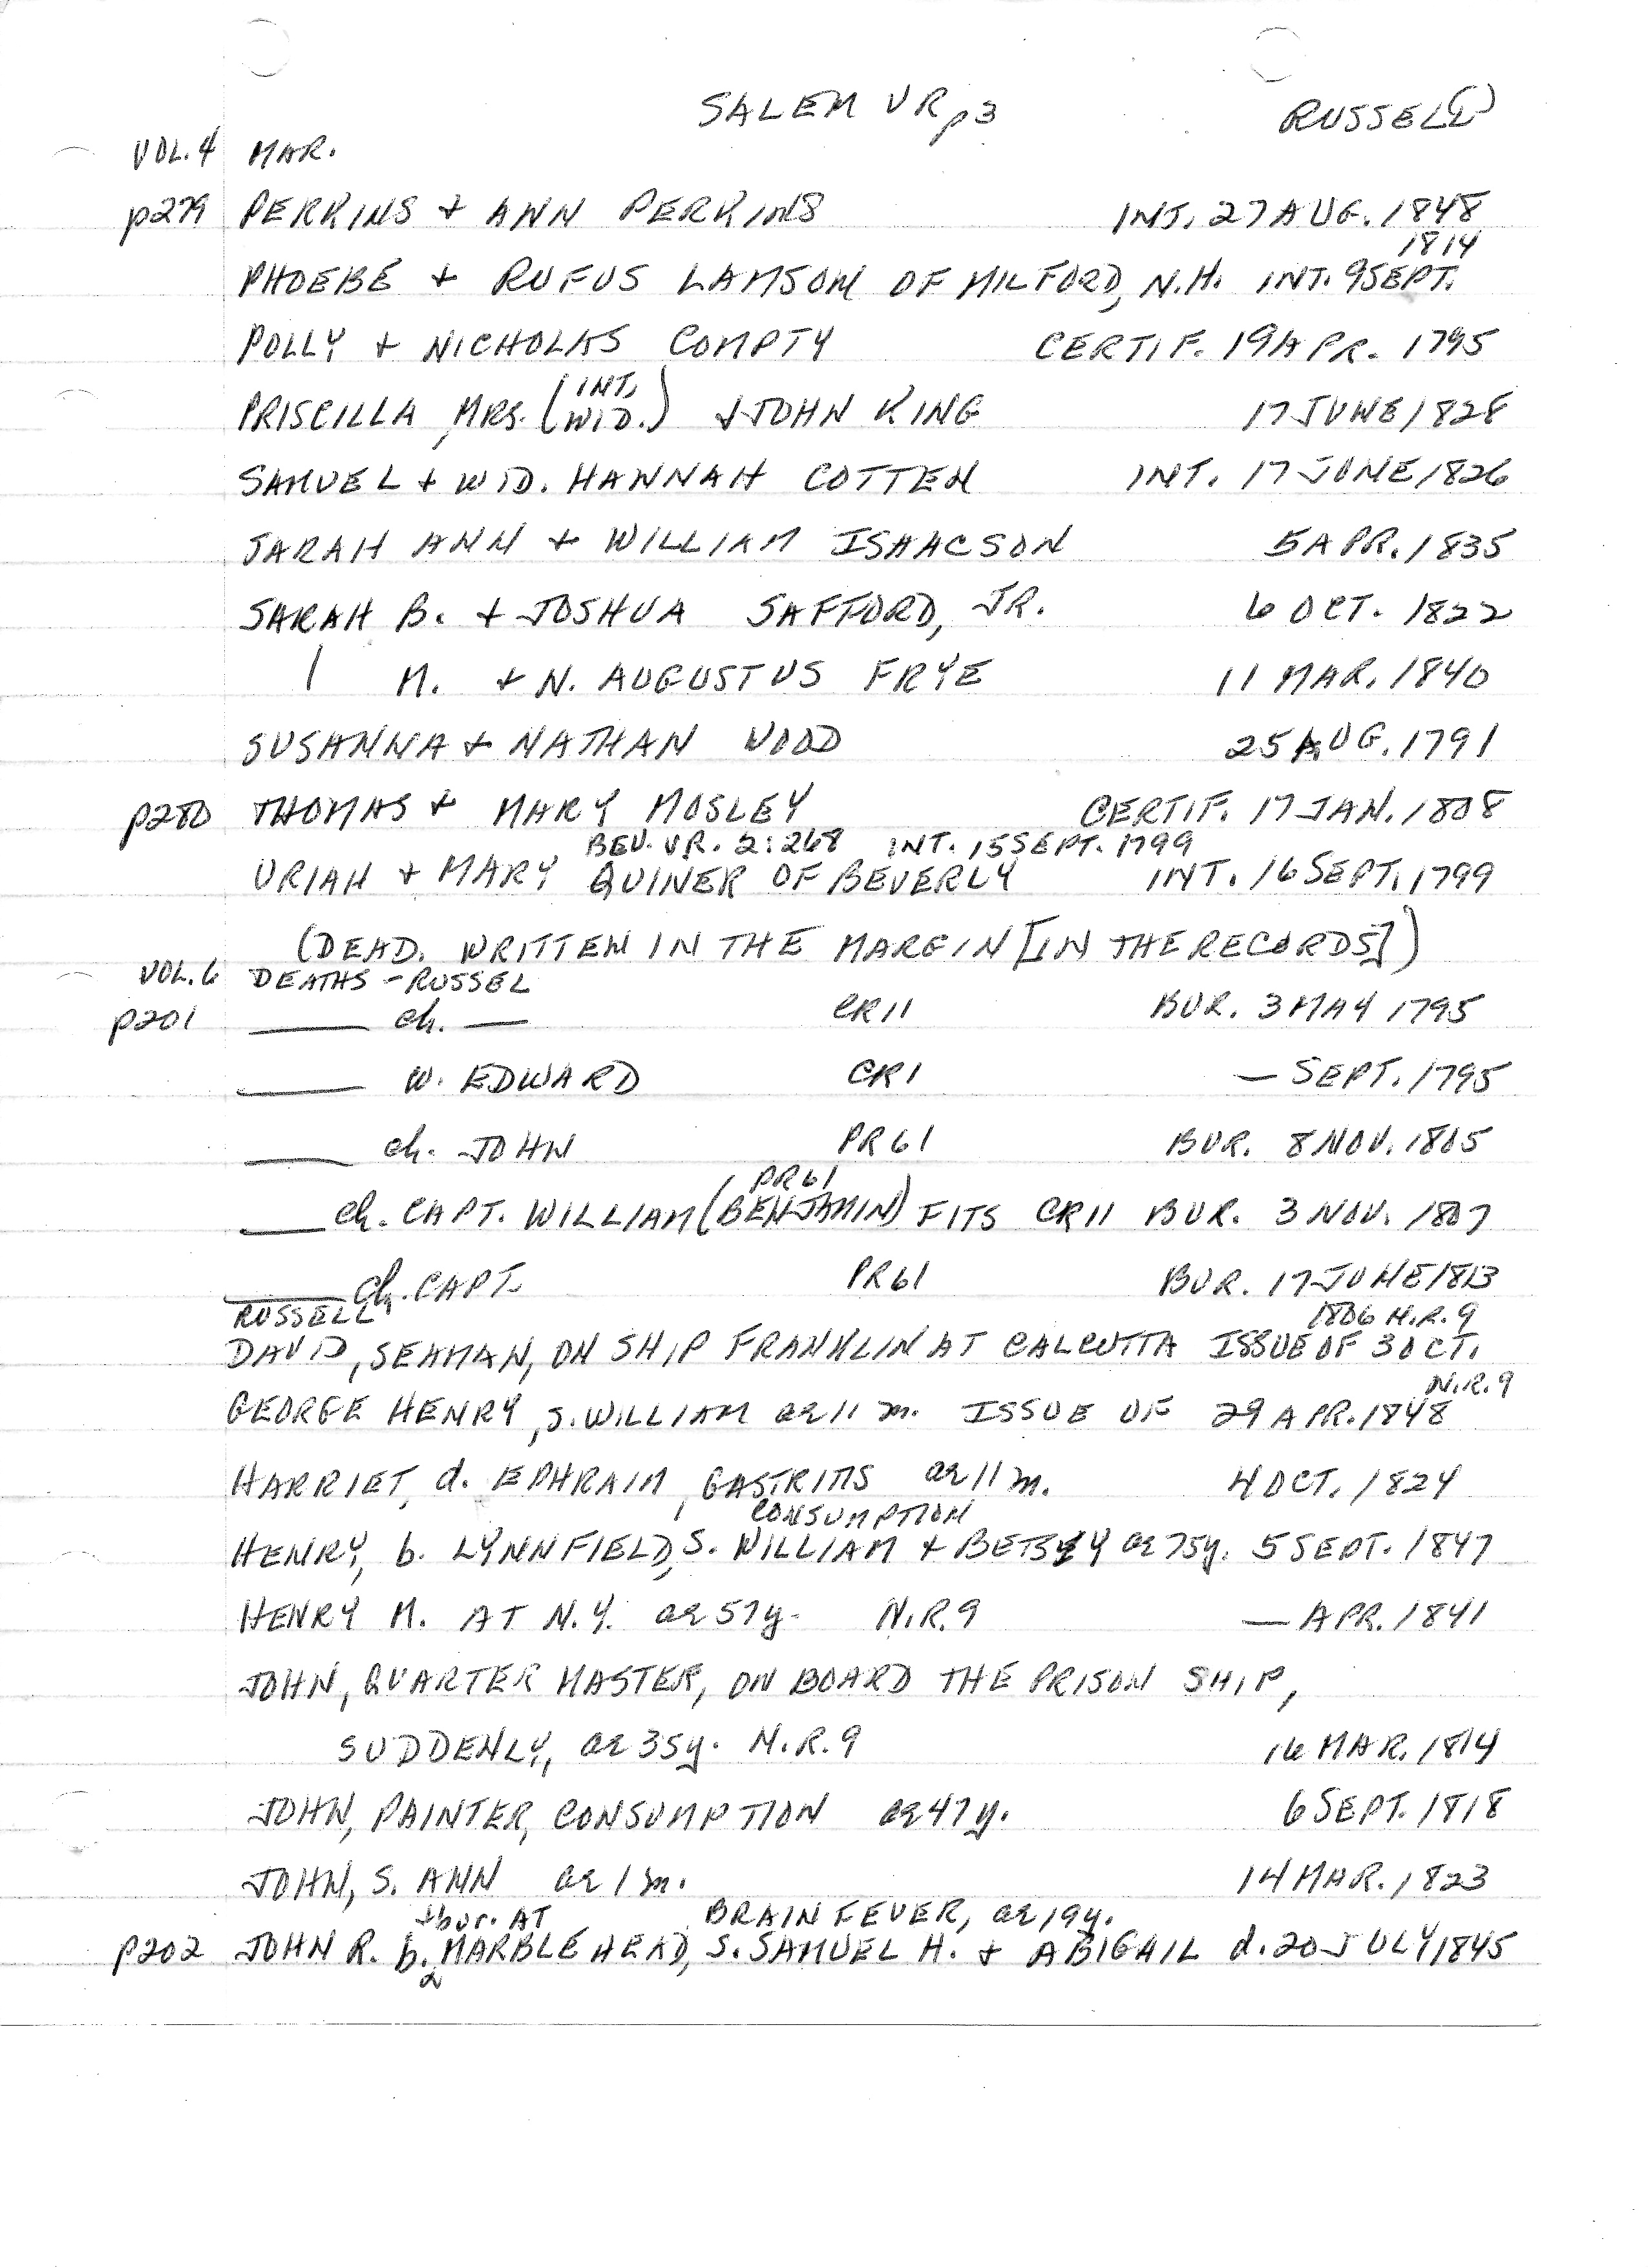 SALEM VR p3 RUSSEL(L)
VOL. 4 MAR.
p279 PERKINS + ANN PERKINS INT. 27 AUG. 1848
1814
PHOEBE + RUFUS LAMSON OF MILFORD, N.H. INT. 9 SEPT.
POLLY + NICHOLAS COMPTY CERTIF. 19 APR. 1795
(INT.
PRISCILLA, MRS. WID.) + JOHN KING 17 JUNE 1828
SAMUEL + WID. HANNAH COTTEN INT. 17 JUNE 1826
SARAH ANN + WILLIAM ISAACSON 5 APR. 1835
SARAH B. + JOSHUA SAFFORD, JR. 6 OCT. 1822
| M. + N. AUGUSTUS FRYE 11 MAR. 1840
SUSANNA + NATHAN WOOD 25 AUG. 1791
p280 THOMAS + MARY MOSLEY CERTIF. 17 JAN. 1808
BEV. VR. 2:268 INT. 15 SEPT. 1799
URIAH + MARY QUINER OF BEVERLY INT. 16 SEPT. 1799
(DEAD. WRITTEN IN THE MARGIN [IN THE RECORDS])
VOL. 6 DEATHS - RUSSEL
p201 ___ ch. — CR11 BUR. 3 MAY 1795
___ w. EDWARD CR1 — SEPT. 1795
___ ch. JOHN PR61 BUR. 8 NOV. 1805
PR61
___ ch. CAPT. WILLIAM (BENJAMIN) FITS CR11 BUR. 3 NOV. 1807
___ ch. CAPT. PR61 BUR. 17 JUNE 1813
RUSSELL 1806 N.R. 9
DAVID, SEAMAN, ON SHIP FRANKLIN AT CALCUTTA ISSUE OF 3 OCT.
N.R. 9
GEORGE HENRY, S. WILLIAM ae 11 m. ISSUE OF 29 APR. 1848
HARRIET, d. EPHRAIM, GASTRITIS ae 11 m. 4 OCT. 1824
CONSUMPTION
HENRY, b. LYNNFIELD, S. WILLIAM + BETSEY ae 75 y. 5 SEPT. 1847
HENRY M. AT N.Y. ae 57 y. N.R. 9 — APR. 1841
JOHN, QUARTER MASTER, ON BOARD THE PRISON SHIP,
SUDDENLY, ae 35 y. N.R. 9 16 MAR. 1814
JOHN, PAINTER, CONSUMPTION ae 47 y. 6 SEPT. 1818
JOHN, S. ANN ae 1 m. 14 MAR. 1823
+ bur. AT BRAIN FEVER, ae 19 y.
p202 JOHN R. b. MARBLEHEAD, S. SAMUEL H. + ABIGAIL d. 20 JULY 1845
2